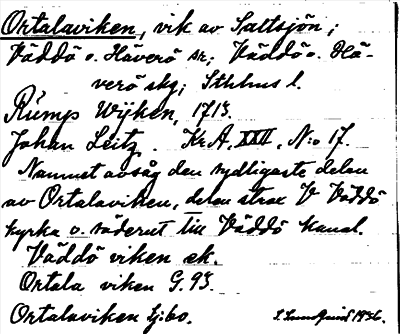 Ortalaviken, vik av Saltsjön;
Väddö o. Häverö sn; Väddö o. Hä-
verö skg; Sthlms l.
Rumps Wijken, 1713.
Johan Leitz. Kr.A, XXII, N:o 17.
Namnet avsåg den sydligaste delen
av Ortalaviken, delen strax V Väddö
kyrka o. söderut till Väddö kanal.
Väddö viken ek.
Ortala viken G. 93.
Ortalaviken tj:bo. S. Lundquist 1936.